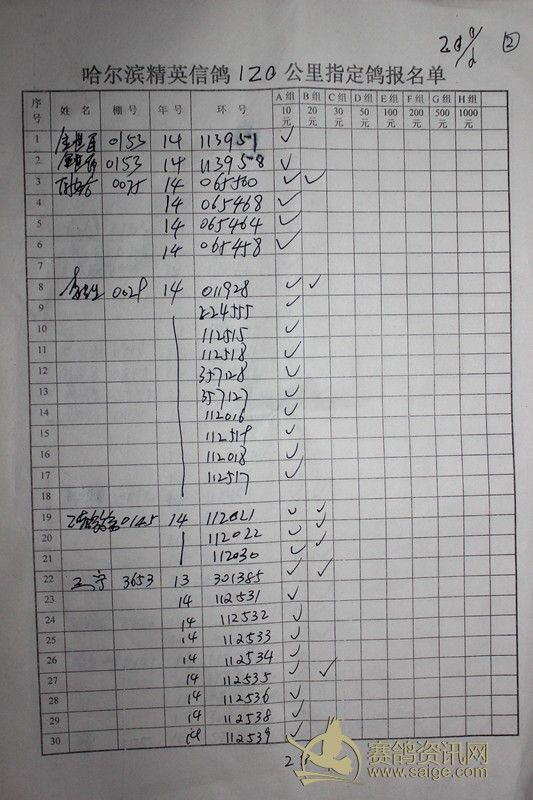 ②
哈尔滨精英信鸽120公里指定鸽报名单
序号 姓名 棚号 年号 环号 A组 B组 C组 D组 E组 F组 G组 H组
10元 20元 30元 50元 100元 200元 500元 1000元
1 0153 14 113951 ✓
2 0153 14 113958 ✓
3 0075 14 065560 ✓ ✓
4 14 065468 ✓
5 14 065464 ✓
6 14 065458 ✓
7
8 14 011928 ✓ ✓
9 224555 ✓
10 112515 ✓
11 112518 ✓
12 357128 ✓
13 357127 ✓
14 112016 ✓
15 112519 ✓
16 112018 ✓
17 112517 ✓
18
19 14 112021 ✓ ✓
20 112022 ✓ ✓
21 112030 ✓ ✓
22 王宁 3653 13 301385 ✓ ✓
23 14 112531 ✓
24 14 112532 ✓
25 14 112533 ✓
26 14 112534 ✓
27 14 112535 ✓ ✓
28 14 112536 ✓
29 14 112538 ✓
30 14 112539 ✓
赛鸽资讯网
www.saige.com